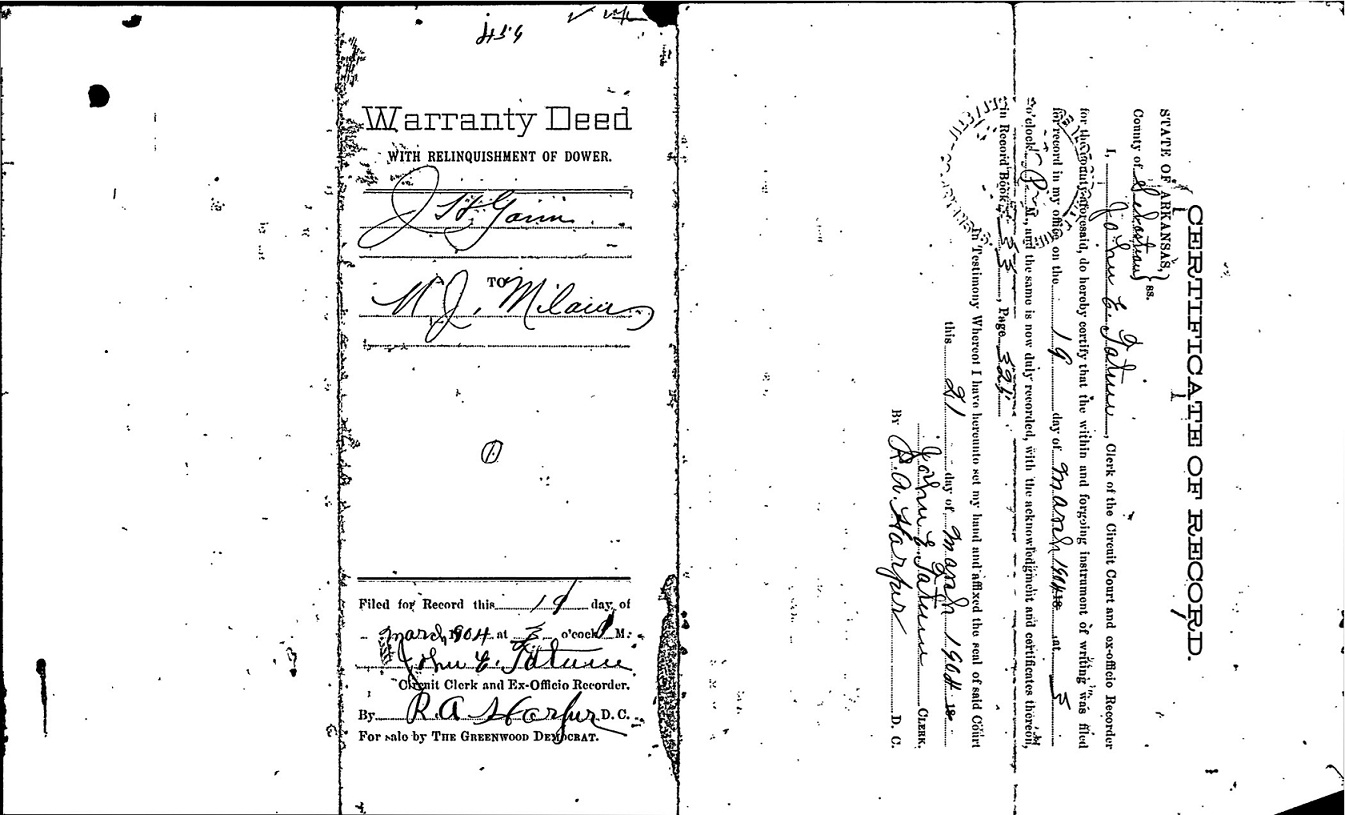 459
Warranty Deed
WITH RELINQUISHMENT OF DOWER.
J H Gann
TO
W. J. Milam
1
Filed for Record this 19 day of
March 1904 at 3 o'cock P M.
John E. Tatum
Circuit Clerk and Ex-Officio Recorder.
By R. A Harper D. C.
For sale by THE GREENWOOD DEMOCRAT.
CERTIFICATE OF RECORD.
STATE OF ARKANSAS,
County of Sebastian } ss.
I, John E. Tatum, Clerk of the Circuit Court and ex-officio Recorder
for the county aforesaid, do hereby certify that the within and forgoing instrument of writing was filed
for record in my office on the 19 day of March 1904 18 at 3
o'clock P M. and the same is now duly recorded, with the acknowledgment and certificates thereon,
in Record Book, 33, Page
In Testimony Whereof I have hereunto set my hand and affixed the seal of said Court
this 21 day of March 1904 18
John E. Tatum CLERK.
By R. A. Harper D. C.